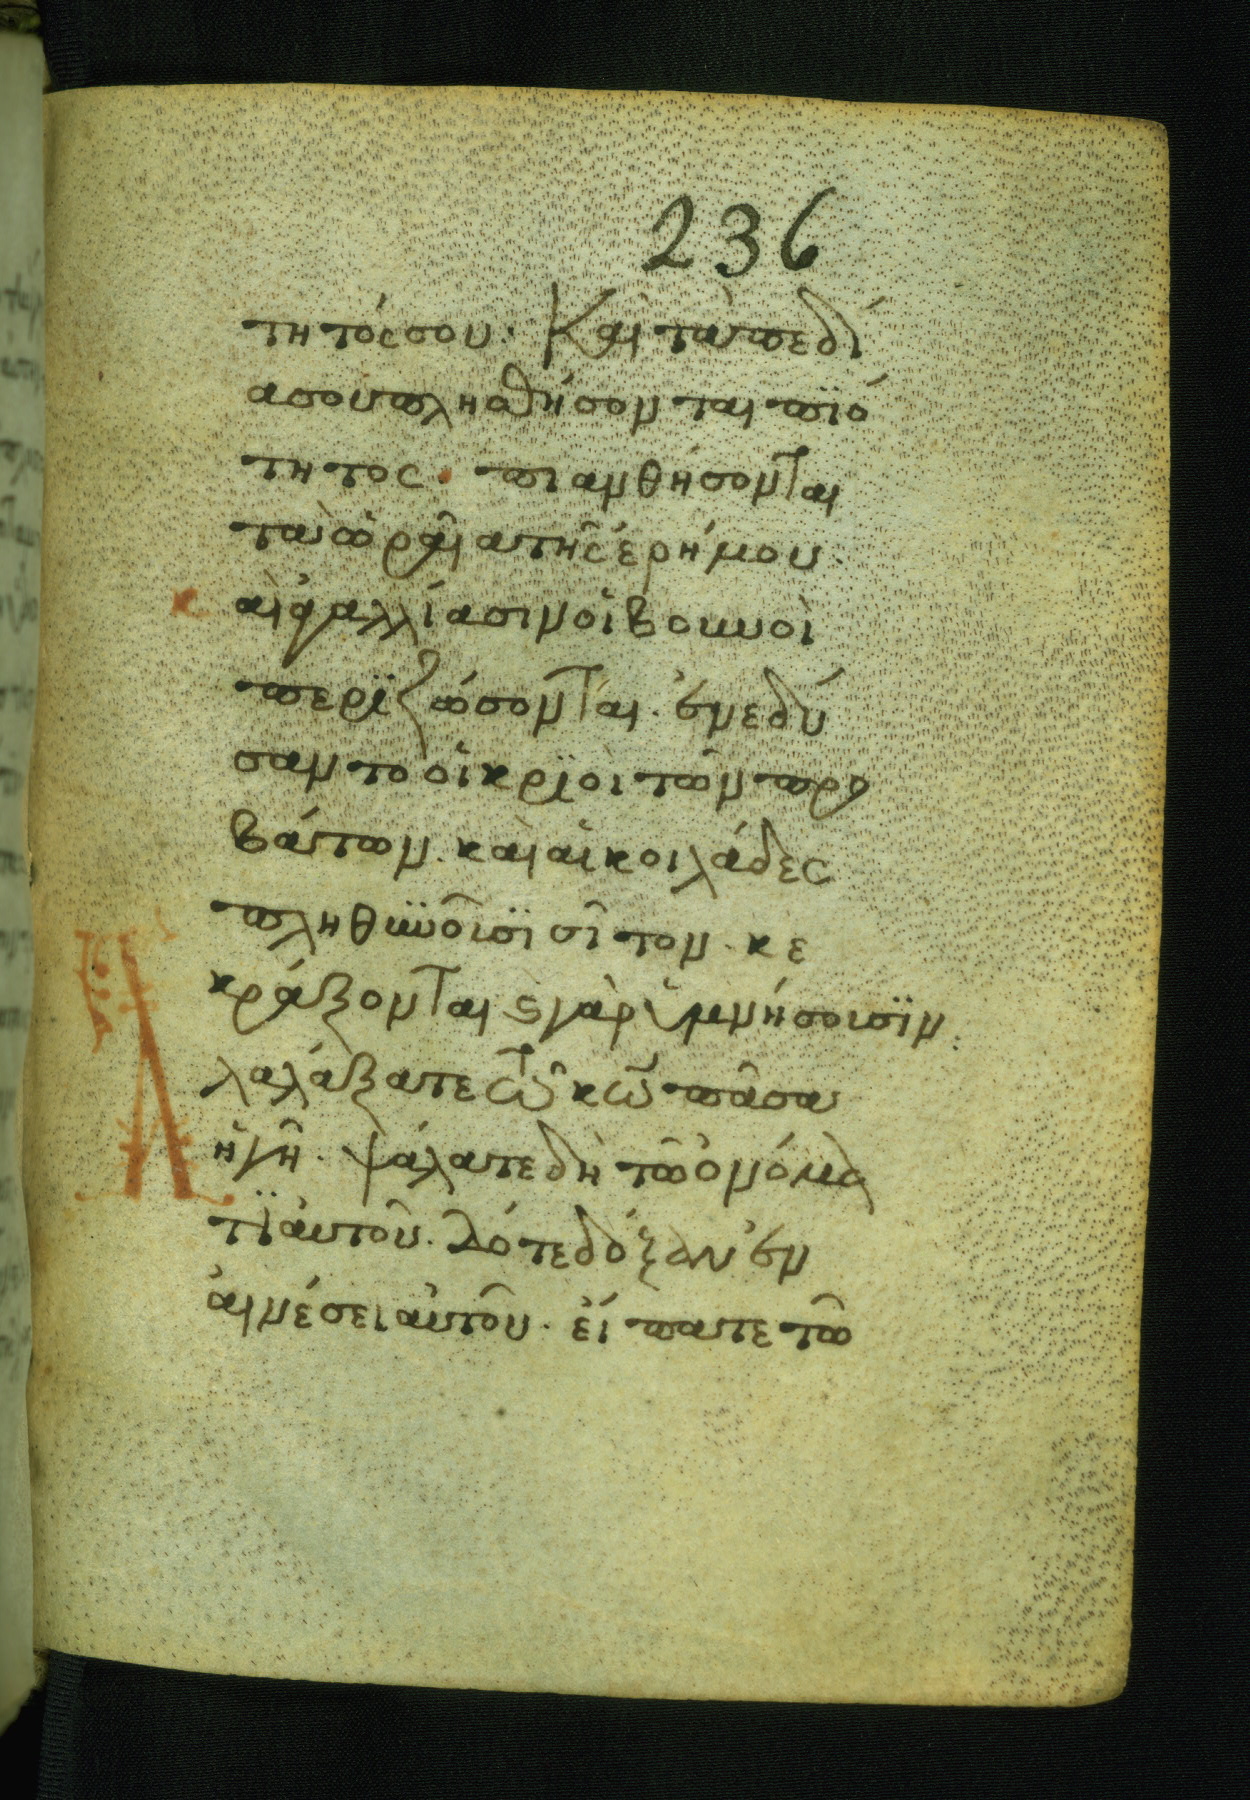 236
τητόςσου. Καὶ τὰ πεδί
α σου πληθήσονται πϊό
τητος. πιανθήσονται
τὰ ὡραῖα τῆς ἐρήμου.
κ αὶ ἀγαλλίασιν οἱ βουνοὶ
περϊζώσονται. ἐνεδύ
σαντο οἱ κρϊοὶ τῶν προ
βάτων. καὶ αἱ κοιλάδες
πληθϋνοῦσϊ σῖτον. κε
κράξονται ϛ γὰρ ὑμνήσουσϊν.
Ἀ λαλάξατε τῶ κω πᾶσα
ἡ γῆ. ψάλατε δὴ τῶ ὀνόμα
τϊ αὐτοῦ. Δότε δόξαν ἐν
αἰνέσει αὐτοῦ. εἴπατε τῶ